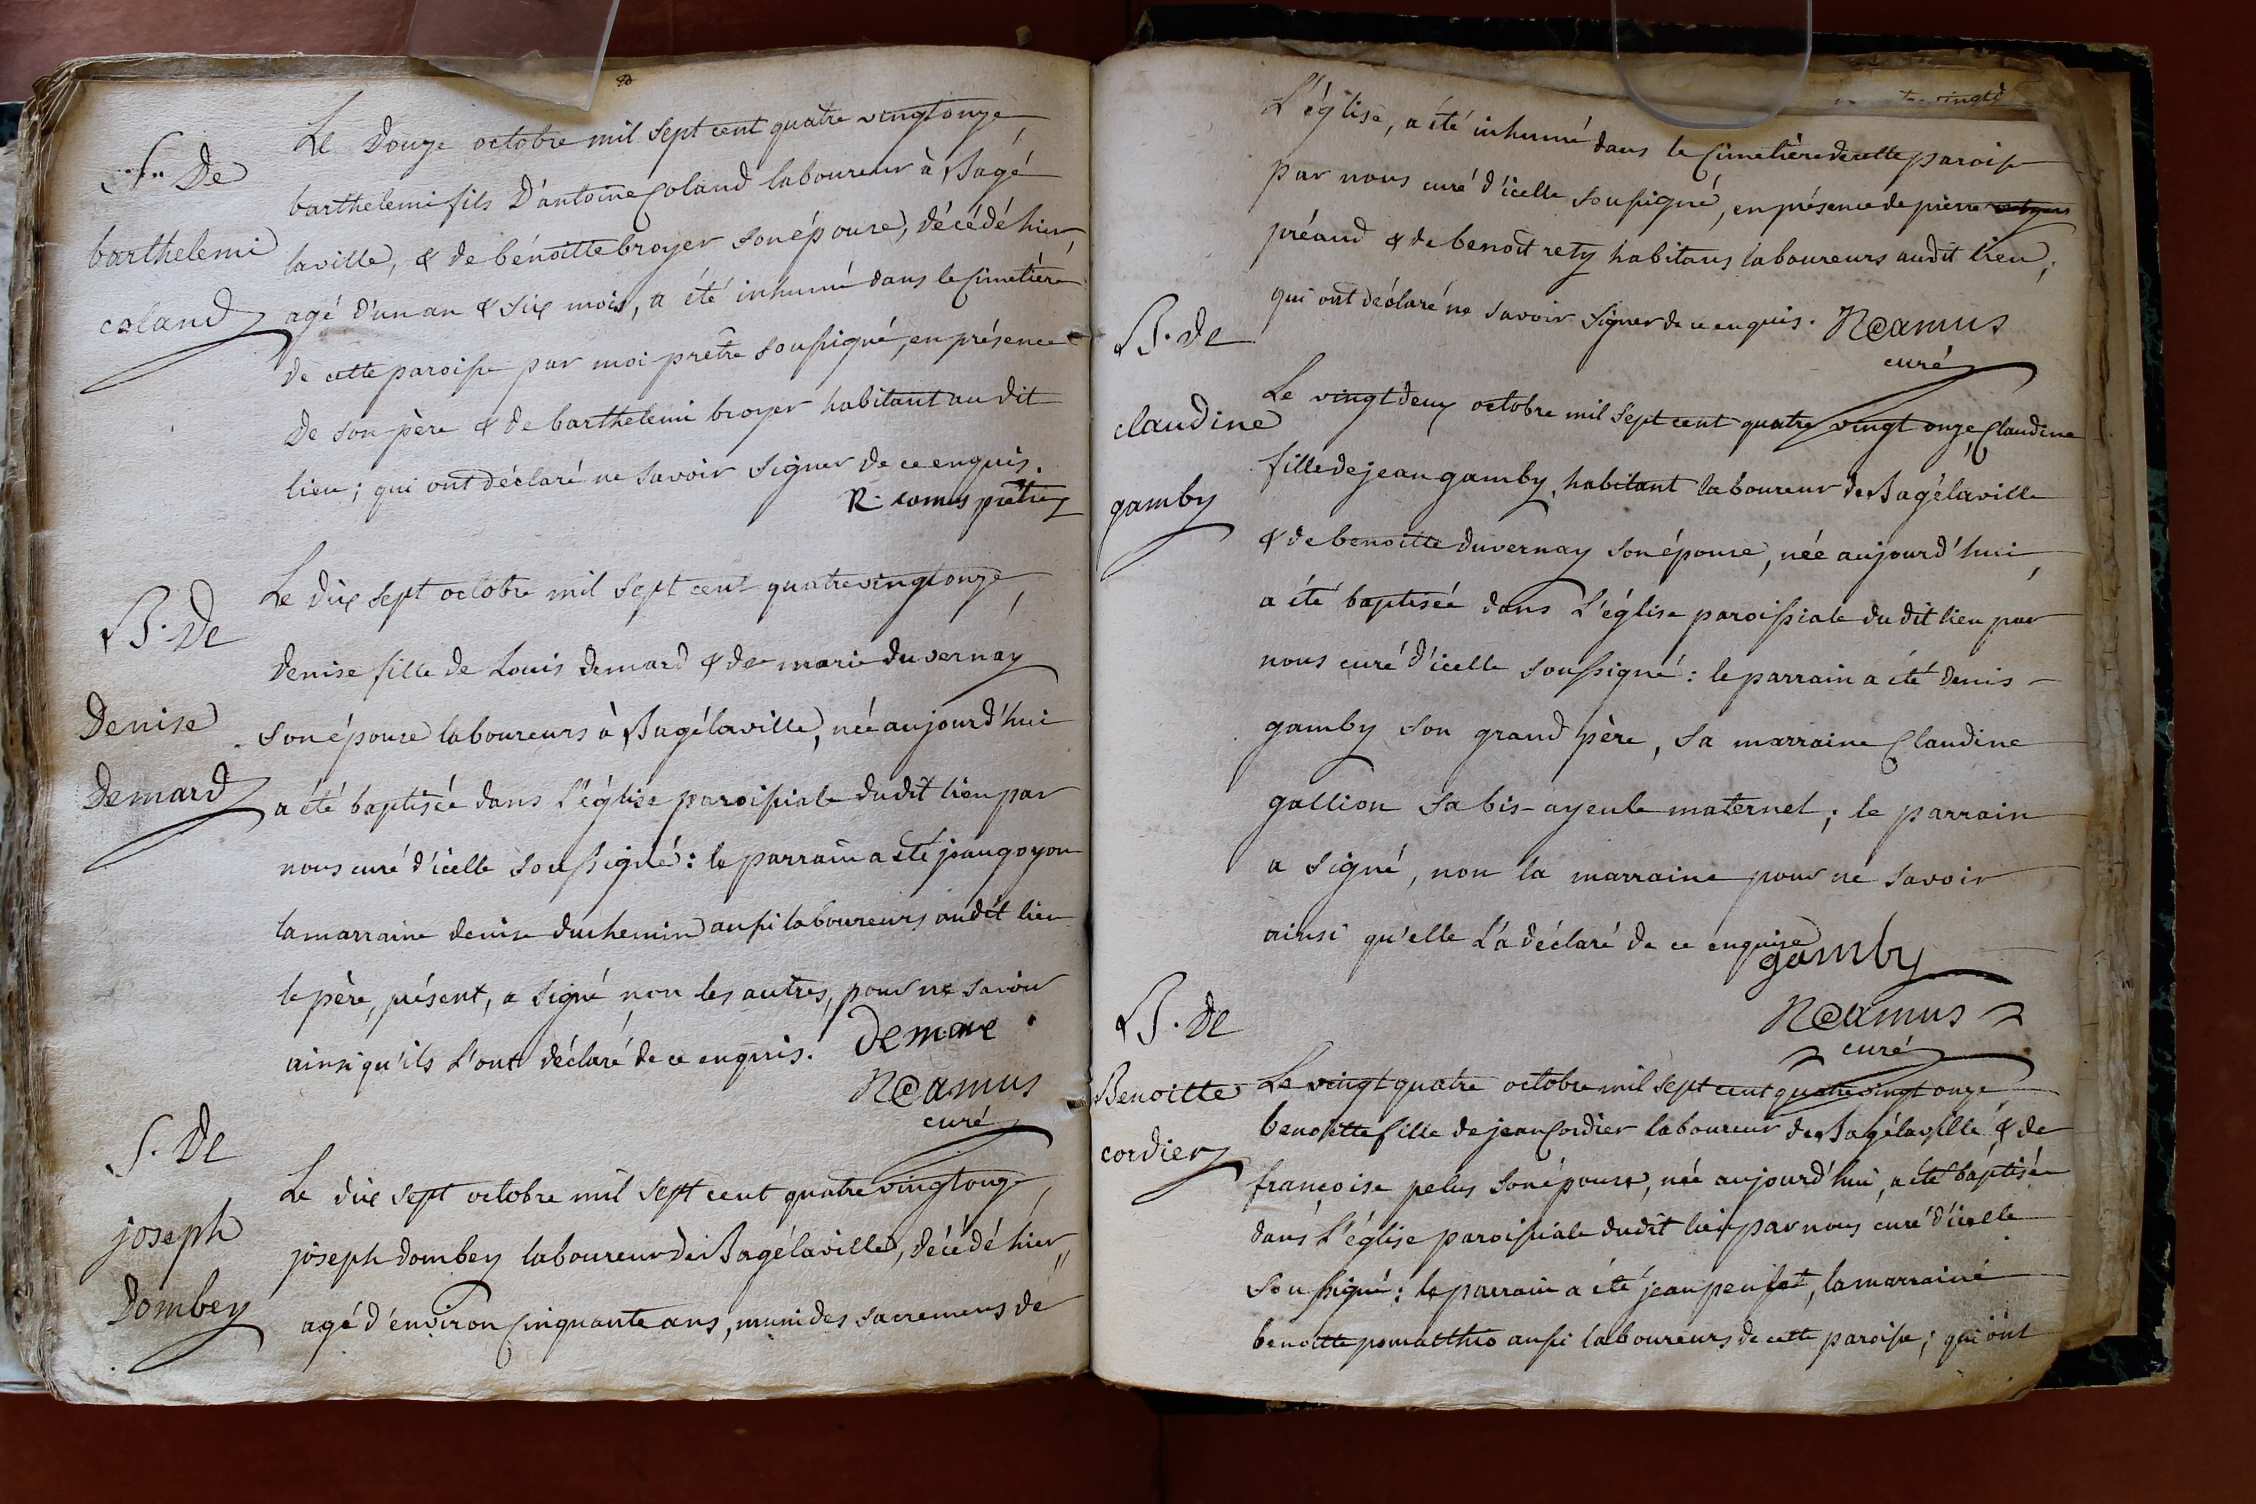 Sre De
barthelemi
coland
Le Douze octobre mil sept cent quatre vingt onze,
barthelemi fils D'antoine Coland laboureur à Bagé
laville, & de bénoitte broyer son épouse, décédé hier,
agé d'un an & six mois, a été inhumé dans le Cimetière
de cette paroisse par moi prêtre soussigné, en présence
de son père & de barthelemi broyer habitant au dit
lieu; qui ont déclaré ne savoir signer de ce enquis.
R. comes prêtre
B. De
Denise
Demard
Le dix sept octobre mil sept cent quatre vingt onze,
denise fille de Louis demard & de marie duvernay
son épouse laboureurs à Bagélaville, née aujourd'hui
a été baptisée dans l'église paroissiale dudit lieu par
nous curé d'icelle soussigné: le parrain a été jean goyon
la marraine denise duchemin aussi laboureurs audit lieu
le père, présent, a signé, non les autres, pour ne savoir
ainsi qu'ils l'ont déclaré de ce enquis. Demare
N@amus
curé
S. De
joseph
Dombey
Le dix sept octobre mil sept cent quatre vingt onze,
joseph dombey laboureur de Bagélaville, décédé hier,
agé d'environ Cinquante ans, muni des sacremens de
L'église, a été inhumé dans le Cimetière de cette paroisse
par nous curé d'icelle soussigné, en présence de pierre
préaud & de benoit rety habitans laboureurs audit lieu;
qui ont déclaré ne savoir signer de ce enquis. N@amus
curé
B. De
claudine
gamby
Le vingt deux octobre mil sept cent quatre vingt onze, Claudine
fille de jean gamby, habitant laboureur de Bagélaville
& de benoitte duvernay son épouse, née aujourd'hui,
a été baptisée dans L'église paroissiale du dit lieu par
nous curé d'icelle soussigné: le parrain a été denis
gamby son grand père, sa marraine Claudine
gallion sa bis-ayeule maternel; le parrain
a signé, non la marraine pour ne savoir
ainsi qu'elle l'a déclaré de ce enquise
gamby
N@amus
curé
B. De
Benoitte
cordier
Le vingt quatre octobre mil sept cent quatre vingt onze,
benoitte fille de jean Cordier laboureur de Bagélaville & de
françoise pelus son épouse, née aujourd'hui, a été baptisée
dans L'église paroissiale dudit lieu par nous curé d'icelle
soussigné: le parrain a été jean peuset, la marraine
benoitte pomatthio aussi laboureurs de cette paroisse; qui ont